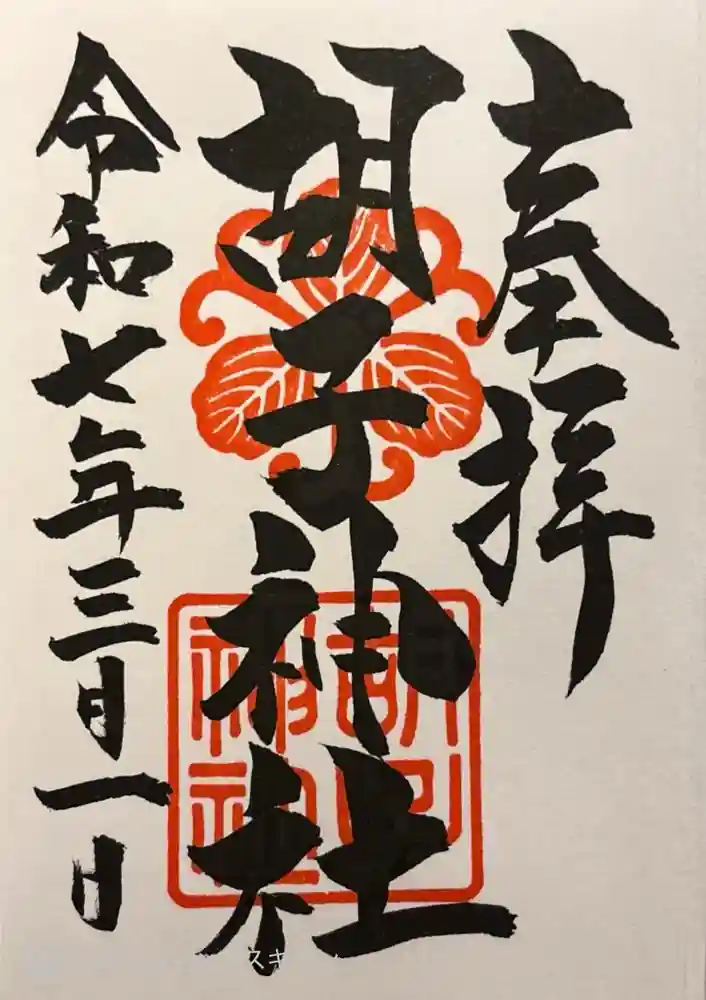 奉拝
胡子神社
令和七年三月一日
胡子
神社
スキ